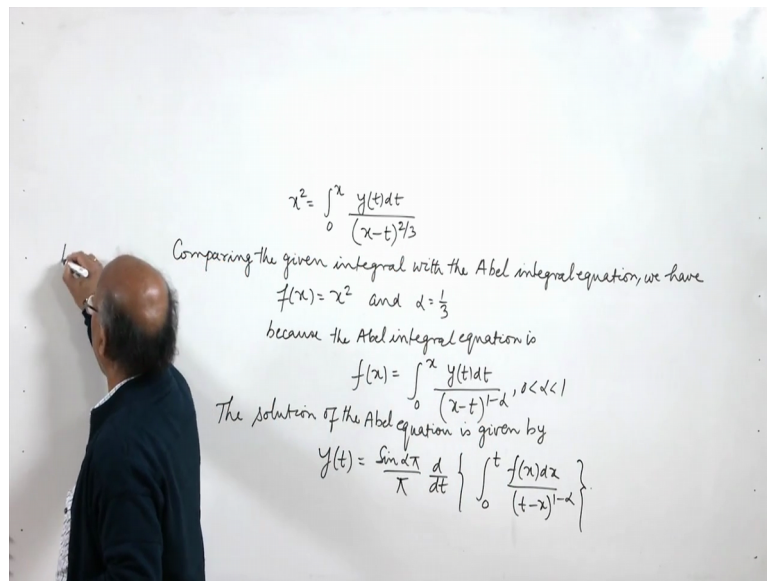 x² = ∫₀ˣ y(t)dt / (x-t)^{2/3}
Comparing the given integral with the Abel integral equation, we have
f(x) = x² and α = 1/3
because the Abel integral equation is
f(x) = ∫₀ˣ y(t)dt / (x-t)^{1-α}, 0<α<1
The solution of the Abel equation is given by
y(t) = sin απ / π d/dt { ∫₀ᵗ f(x)dx / (t-x)^{1-α} }.